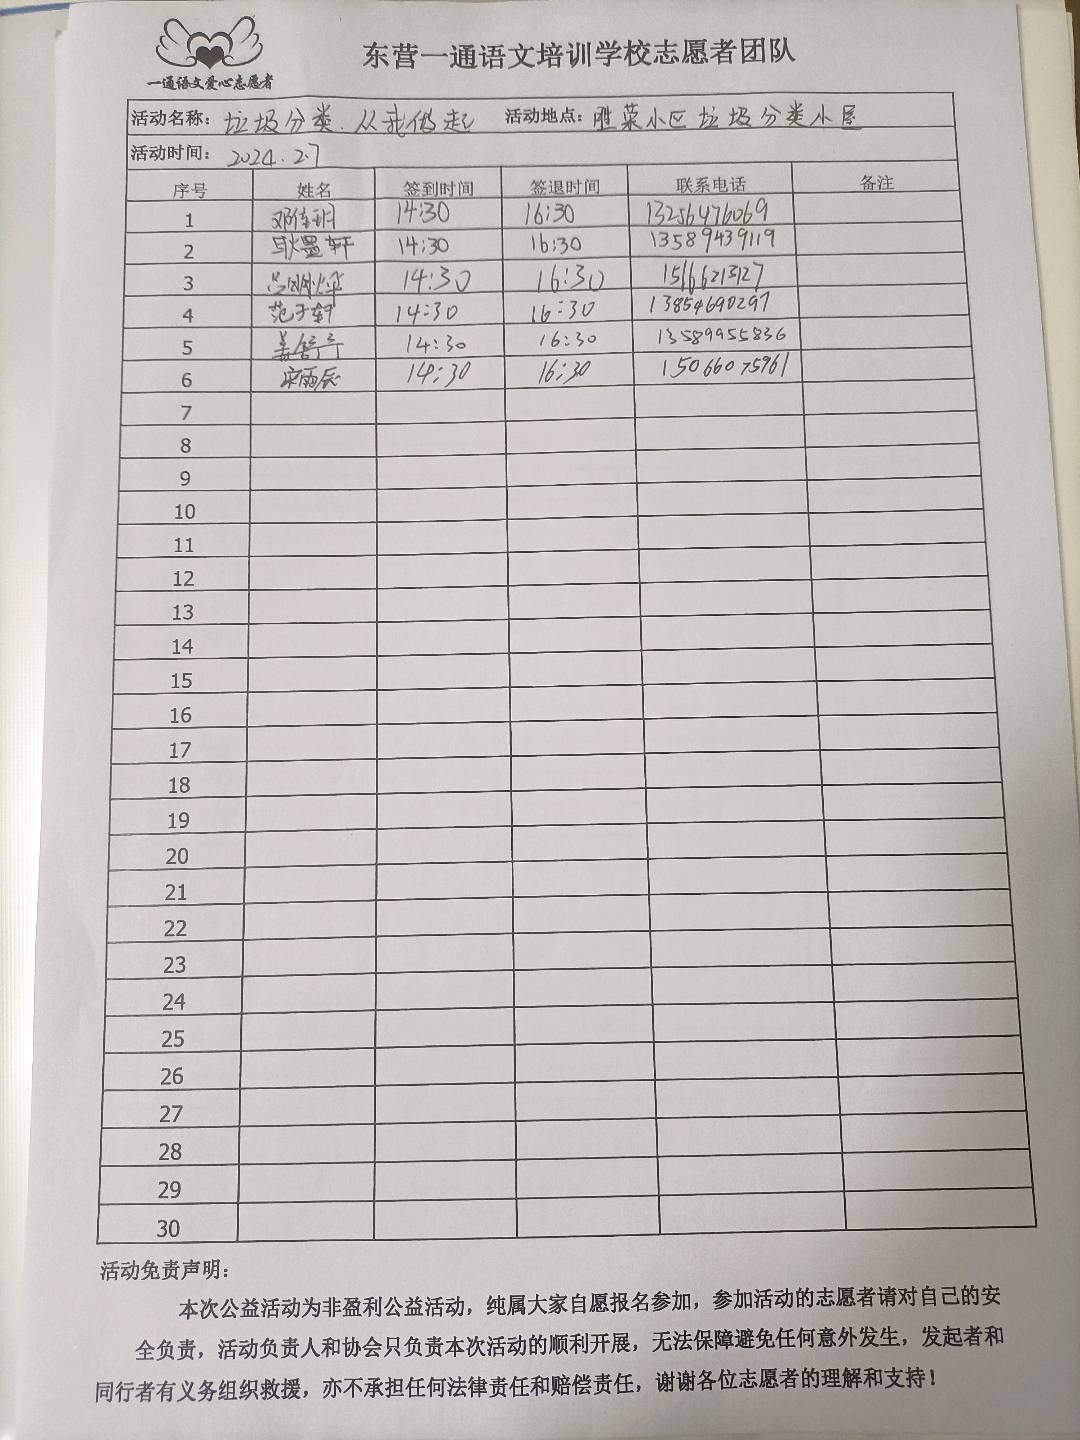 东营一通语文培训学校志愿者团队
一通语文爱心志愿者
活动名称：垃圾分类.从我做起 活动地点：胜莱小区垃圾分类小屋
活动时间：2024.2.7
序号 姓名 签到时间 签退时间 联系电话 备注
1 邓佳玥 14:30 16:30 13256476069
2 耿墨轩 14:30 16:30 13589439119
3 14:30 16:30
4 范子轩 14:30 16:30 13854690297
5 14:30 16:30 13589955836
6 宋雨辰 14:30 16:30 15066075961
7
8
9
10
11
12
13
14
15
16
17
18
19
20
21
22
23
24
25
26
27
28
29
30
活动免责声明：
本次公益活动为非盈利公益活动，纯属大家自愿报名参加，参加活动的志愿者请对自己的安
全负责，活动负责人和协会只负责本次活动的顺利开展，无法保障避免任何意外发生，发起者和
同行者有义务组织救援，亦不承担任何法律责任和赔偿责任，谢谢各位志愿者的理解和支持！